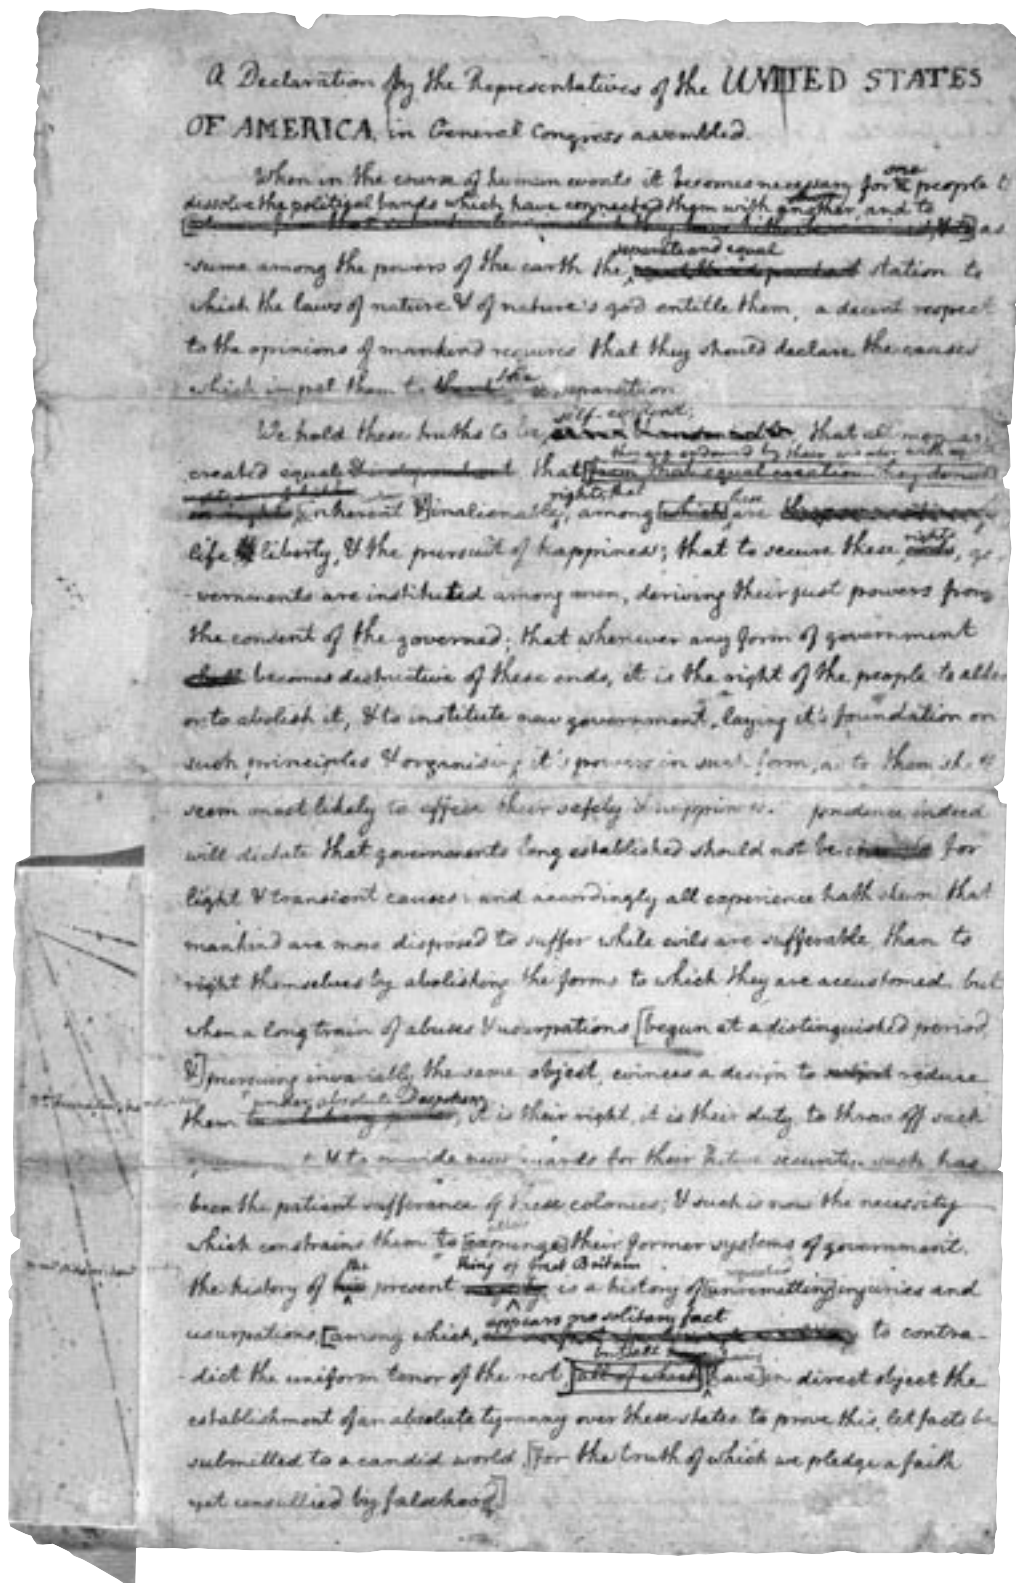 A Declaration by the Representatives of the UNITED STATES
OF AMERICA, in General Congress assembled.
When in the course of human events it becomes necessary for one people to
dissolve the political bands which have connected them with another, and to
as
-sume among the powers of the earth the separate and equal station to
which the laws of nature & of nature's god entitle them, a decent respect
to the opinions of mankind requires that they should declare the causes
which impel them to the separation.
We hold these truths to be self-evident; that all men are
created equal & independent that they are endowed by their creator with
from that equal creation they derive
rights, that
inherent & inalienable, among which these are
life & liberty, & the pursuit of happiness; that to secure these rights, go
-vernments are instituted among men, deriving their just powers from
the consent of the governed; that whenever any form of government
shall becomes destructive of these ends, it is the right of the people to alter
or to abolish it, & to institute new government, laying it's foundation on
such principles & organising it's powers in such form, as to them shall
seem most likely to effect their safety & happiness. prudence indeed
will dictate that governments long established should not be for
light & transient causes: and accordingly all experience hath shewn that
mankind are more disposed to suffer while evils are sufferable, than to
right themselves by abolishing the forms to which they are accustomed. but
when a long train of abuses & usurpations [begun at a distinguished period,
&] pursuing invariably the same object, evinces a design to reduce
them under absolute Despotism, it is their right, it is their duty, to throw off such
& to provide new guards for their future security. such has
been the patient sufferance of these colonies; & such is now the necessity
which constrains them to [expunge] their former systems of government.
the history of the present King of Great Britain is a history of [unremitting] injuries and
usurpations, [among which, appears no solitary fact to contra-
-dict the uniform tenor of the rest all of which [have] in direct object the
establishment of an absolute tyranny over these states. to prove this, let facts be
submitted to a candid world, [for the truth of which we pledge a faith
yet unsullied by falsehood]